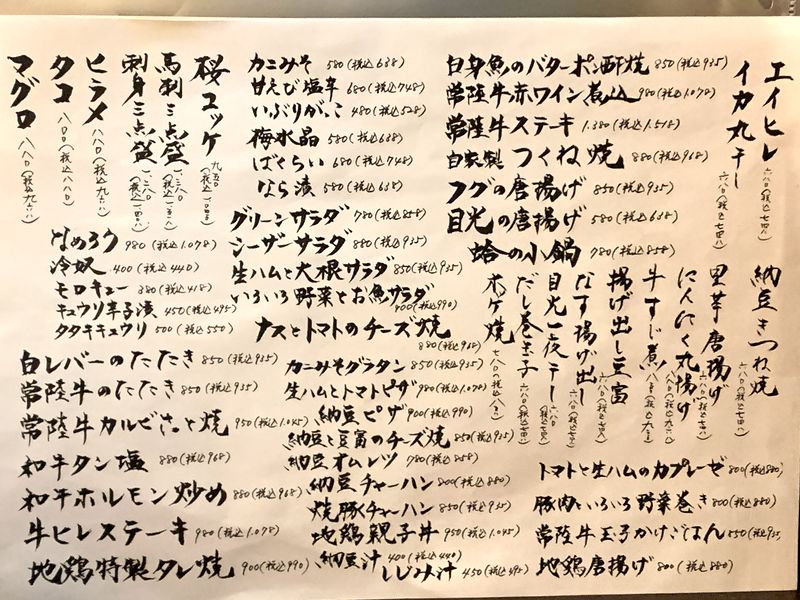 エイヒレ 六八〇(税込七四八)
イカ丸干し 六八〇(税込七四八)
白身魚のバターポン酢焼 850(税込935)
常陸牛赤ワイン煮込 980(税込1.078)
常陸牛ステーキ 1.380(税込1.518)
自家製つくね焼 880(税込968)
フグの唐揚げ 850(税込935)
目光の唐揚げ 580(税込638)
蛤の小鍋 780(税込858)
カニみそ 580(税込638)
甘えび塩辛 680(税込748)
いぶりがっこ 480(税込528)
梅水晶 580(税込638)
ばくらい 680(税込748)
なら漬 580(税込638)
グリーンサラダ 780(税込858)
シーザーサラダ 850(税込935)
生ハムと大根サラダ 850(税込935)
いろいろ野菜とお魚サラダ 900(税込990)
ナスとトマトのチーズ焼 880(税込968)
桜ユッケ 九五〇
馬刺三点盛
刺身三点盛
ヒラメ 八八〇(税込九六八)
タコ 八〇〇(税込八八〇)
マグロ 八八〇(税込九六八)
なめろう 980(税込1.078)
冷奴 400(税込440)
モロキュー 380(税込418)
キュウリ辛子漬 450(税込495)
タタキキュウリ 500(税込550)
納豆きつね焼 六八〇(税込七四八)
里芋唐揚げ 六八〇(税込七四八)
にんにく丸揚げ
牛すじ煮
揚げ出し豆富 六八〇(税込七四八)
なす揚げ出し
目光一夜干し
だし巻き玉子 六八〇(税込七四八)
ホッケ焼
白レバーのたたき 850(税込935)
常陸牛のたたき 850(税込935)
常陸牛カルビさっと焼 950(税込1.045)
和牛タン塩 880(税込968)
和牛ホルモン炒め 880(税込968)
牛ヒレステーキ 980(税込1.078)
地鶏特製タレ焼 900(税込990)
カニみそグラタン 850(税込935)
生ハムとトマトピザ 980(税込1.078)
納豆ピザ 900(税込990)
納豆と豆富のチーズ焼 850(税込935)
納豆オムレツ 780(税込858)
納豆チャーハン 800(税込880)
焼豚チャーハン 850(税込935)
地鶏親子丼 950(税込1.045)
納豆汁 400(税込440)
しじみ汁 450(税込495)
トマトと生ハムのカプレーゼ 800(税込880)
豚肉といろいろ野菜巻き 800(税込880)
常陸牛玉子かけごはん 850(税込935)
地鶏唐揚げ 800(税込880)